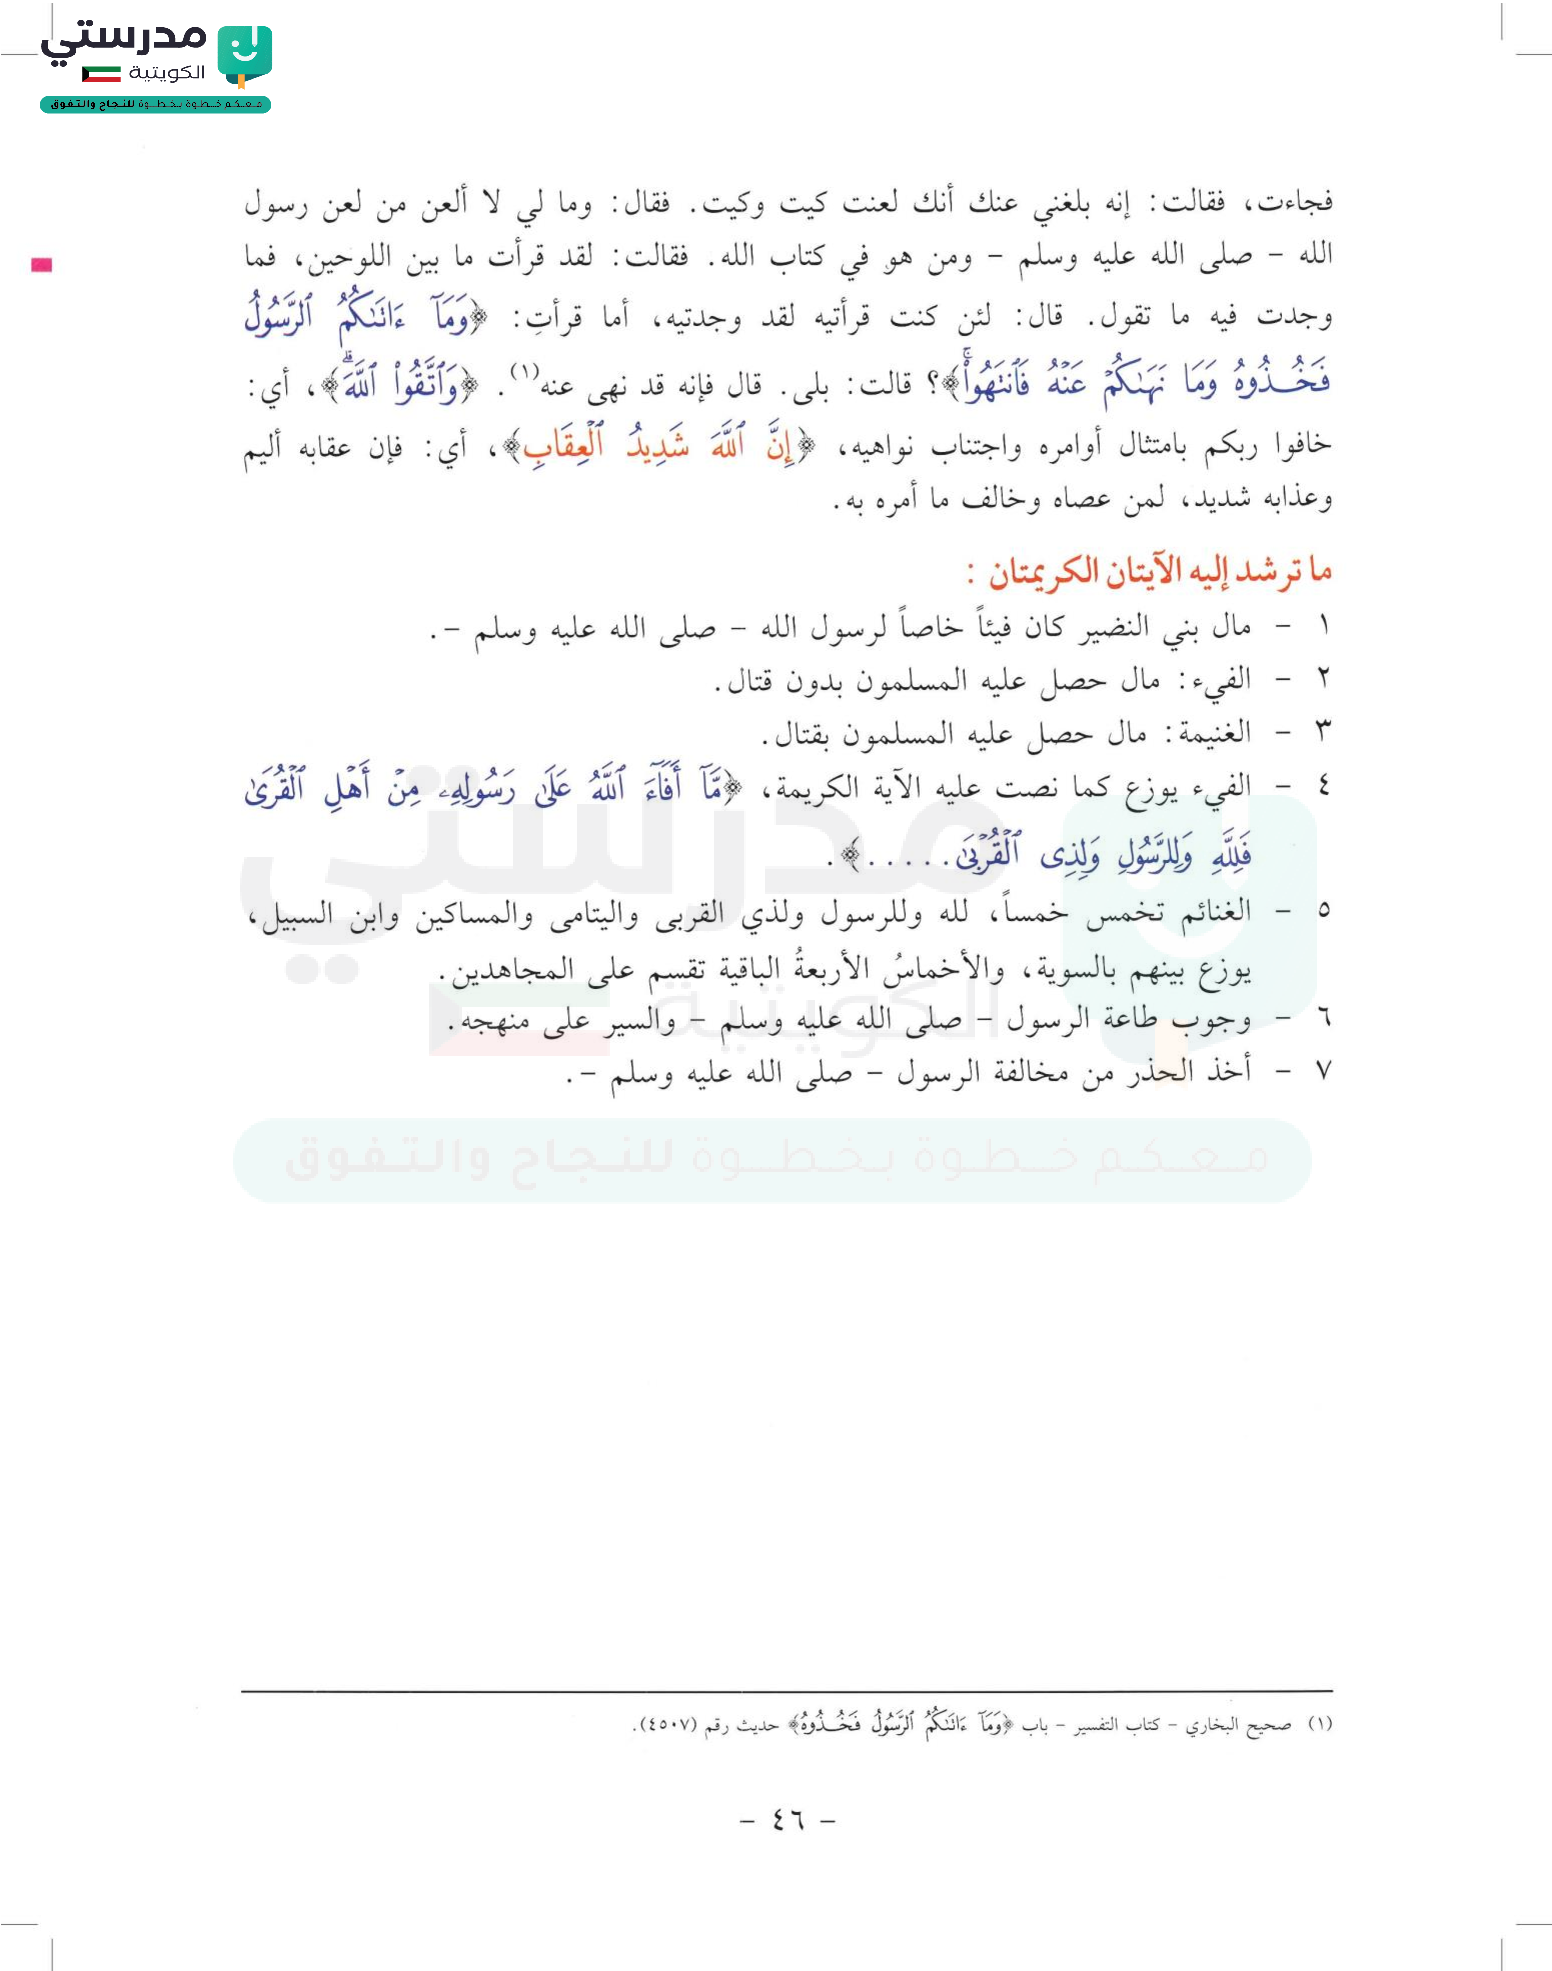 مدرستي
الكويتية
معكم خطوة بخطوة للنجاح والتفوق
فجاءت، فقالت: إنه بلغني عنك أنك لعنت كيت وكيت. فقال: وما لي لا ألعن من لعن رسول
الله – صلى الله عليه وسلم – ومن هو في كتاب الله. فقالت: لقد قرأت ما بين اللوحين، فما
وجدت فيه ما تقول. قال: لئن كنت قرأتيه لقد وجدتيه، أما قرأتِ: ﴿وَمَآ ءَاتَىٰكُمُ ٱلرَّسُولُ
فَخُذُوهُ وَمَا نَهَىٰكُمْ عَنْهُ فَٱنتَهُوا۟ۚ﴾؟ قالت: بلى. قال فإنه قد نهى عنه(١). ﴿وَٱتَّقُوا۟ ٱللَّهَۖ﴾، أي:
خافوا ربكم بامتثال أوامره واجتناب نواهيه، ﴿إِنَّ ٱللَّهَ شَدِيدُ ٱلْعِقَابِ﴾، أي: فإن عقابه أليم
وعذابه شديد، لمن عصاه وخالف ما أمره به.
ما ترشد إليه الآيتان الكريمتان :
١ – مال بني النضير كان فيئاً خاصاً لرسول الله – صلى الله عليه وسلم –.
٢ – الفيء: مال حصل عليه المسلمون بدون قتال.
٣ – الغنيمة: مال حصل عليه المسلمون بقتال.
٤ – الفيء يوزع كما نصت عليه الآية الكريمة، ﴿مَّآ أَفَآءَ ٱللَّهُ عَلَىٰ رَسُولِهِۦ مِنْ أَهْلِ ٱلْقُرَىٰ
فَلِلَّهِ وَلِلرَّسُولِ وَلِذِى ٱلْقُرْبَىٰ.....﴾.
٥ – الغنائم تخمس خمساً، لله وللرسول ولذي القربى واليتامى والمساكين وابن السبيل،
يوزع بينهم بالسوية، والأخماسُ الأربعةُ الباقية تقسم على المجاهدين.
٦ – وجوب طاعة الرسول – صلى الله عليه وسلم – والسير على منهجه.
٧ – أخذ الحذر من مخالفة الرسول – صلى الله عليه وسلم –.
مدرستي
الكويتية
معكم خطوة بخطوة للنجاح والتفوق
(١) صحيح البخاري – كتاب التفسير – باب ﴿وَمَآ ءَاتَىٰكُمُ ٱلرَّسُولُ فَخُذُوهُ﴾ حديث رقم (٤٥٠٧).
– ٤٦ –